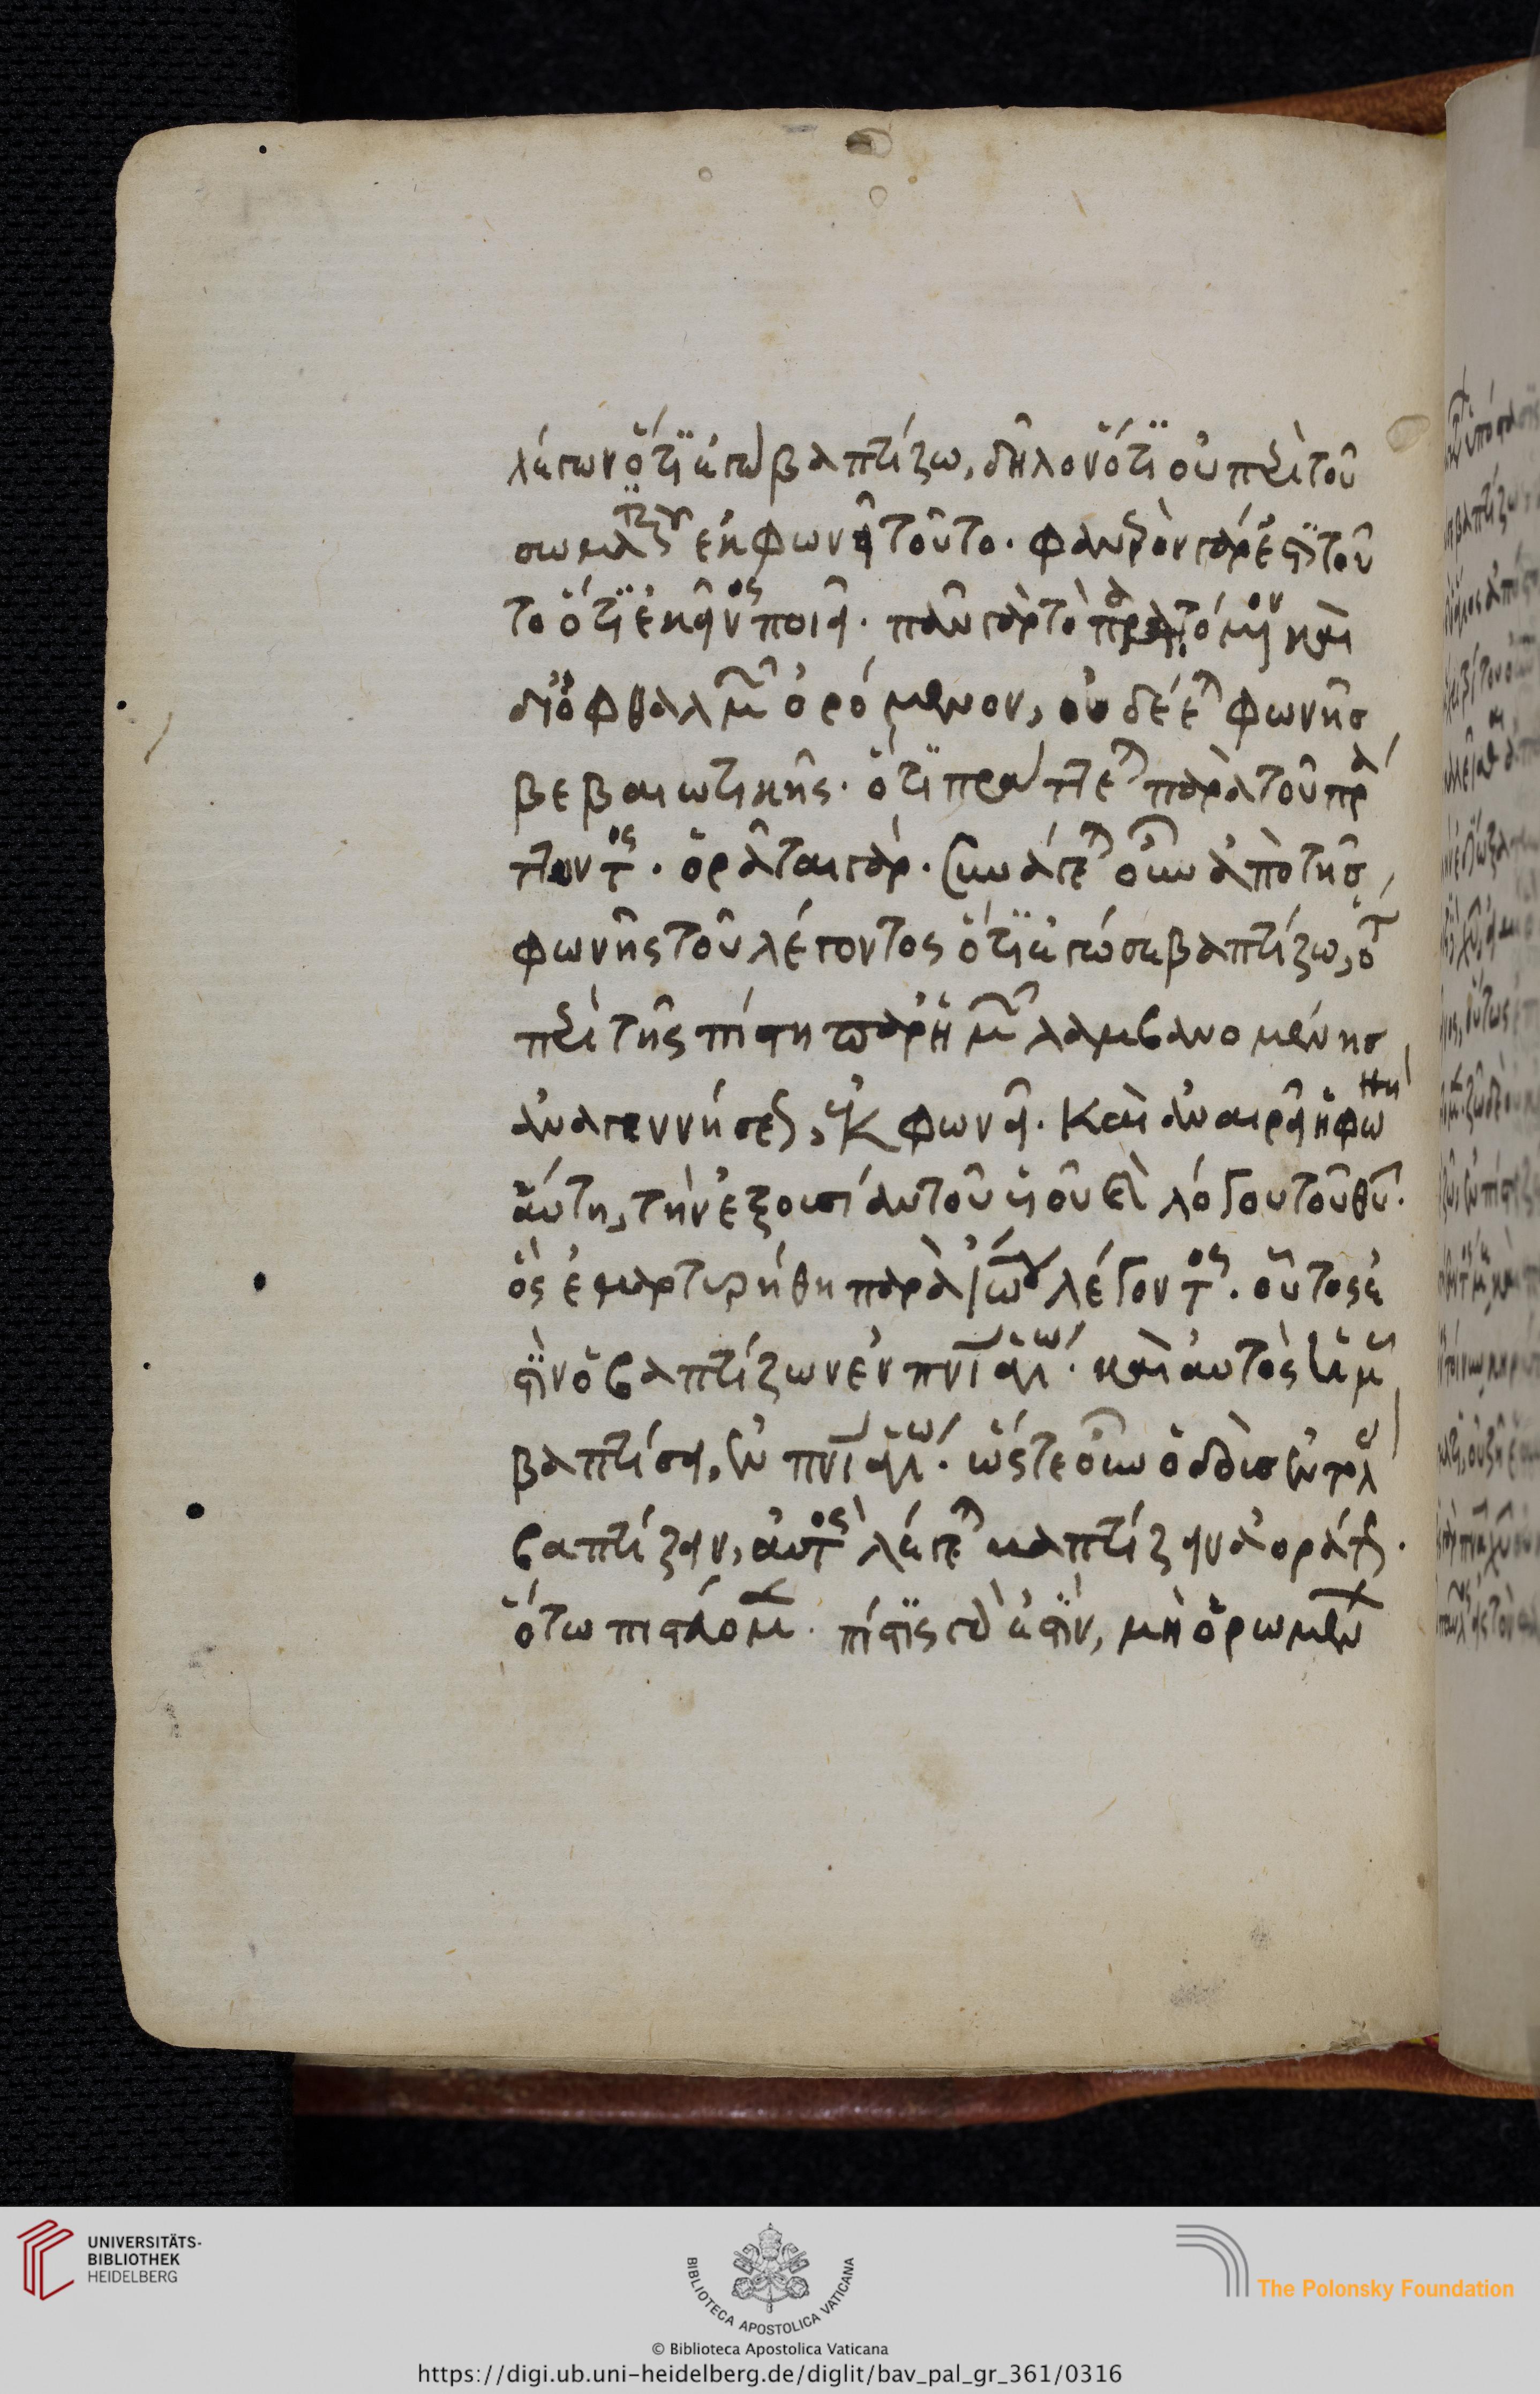 λέγων ὅτι ἐγὼ βαπτίζω, δῆλον ὅτι οὐ περὶ τοῦ
σώματος ἐκφωνεῖ τοῦτο. φανερὸν γάρ ἐστι τοῦ
το ὅτι ἐκεῖνος ποιεῖ. πᾶν γὰρ τὸ πραττόμενον καὶ
δι' ὀφθαλμῶν ὁρόμενον, οὐ δέεται φωνῆς
βεβαιωτικῆς. ὅτι πράττεται παρὰ τοῦ πρά
ττοντος. ὁρᾶται γάρ.
φωνῆς τοῦ λέγοντος ὅτι ἐγώ σε βαπτίζω, ὅτι
περὶ τῆς πίστει παρ' ἡμῶν λαμβανομένης
ἀναγεννήσεως, ἐκφωνεῖ. Καὶ ἀναιρεῖ ἡ φωνὴ
αὕτη, τὴν ἐξουσίαν τοῦ υἱοῦ καὶ λόγου τοῦ θυ.
ὃς ἐμαρτυρήθη παρὰ ἰωάννου λέγοντος. οὗτός ἐ
στιν ὁ βαπτίζων ἐν πνι ἁγίω. καὶ αὐτὸς ὑμᾶς
βαπτίσει, ἐν πνι ἁγίω. ὥστε οὖν ὁ δοὺς ἐντολὴν
βαπτίζειν, αὐτὸς λέγεται βαπτίζειν ἀοράτως.
ὅτω πιστεύομεν. πίστις γὰρ ἐστιν, μὴ ὁρωμένων